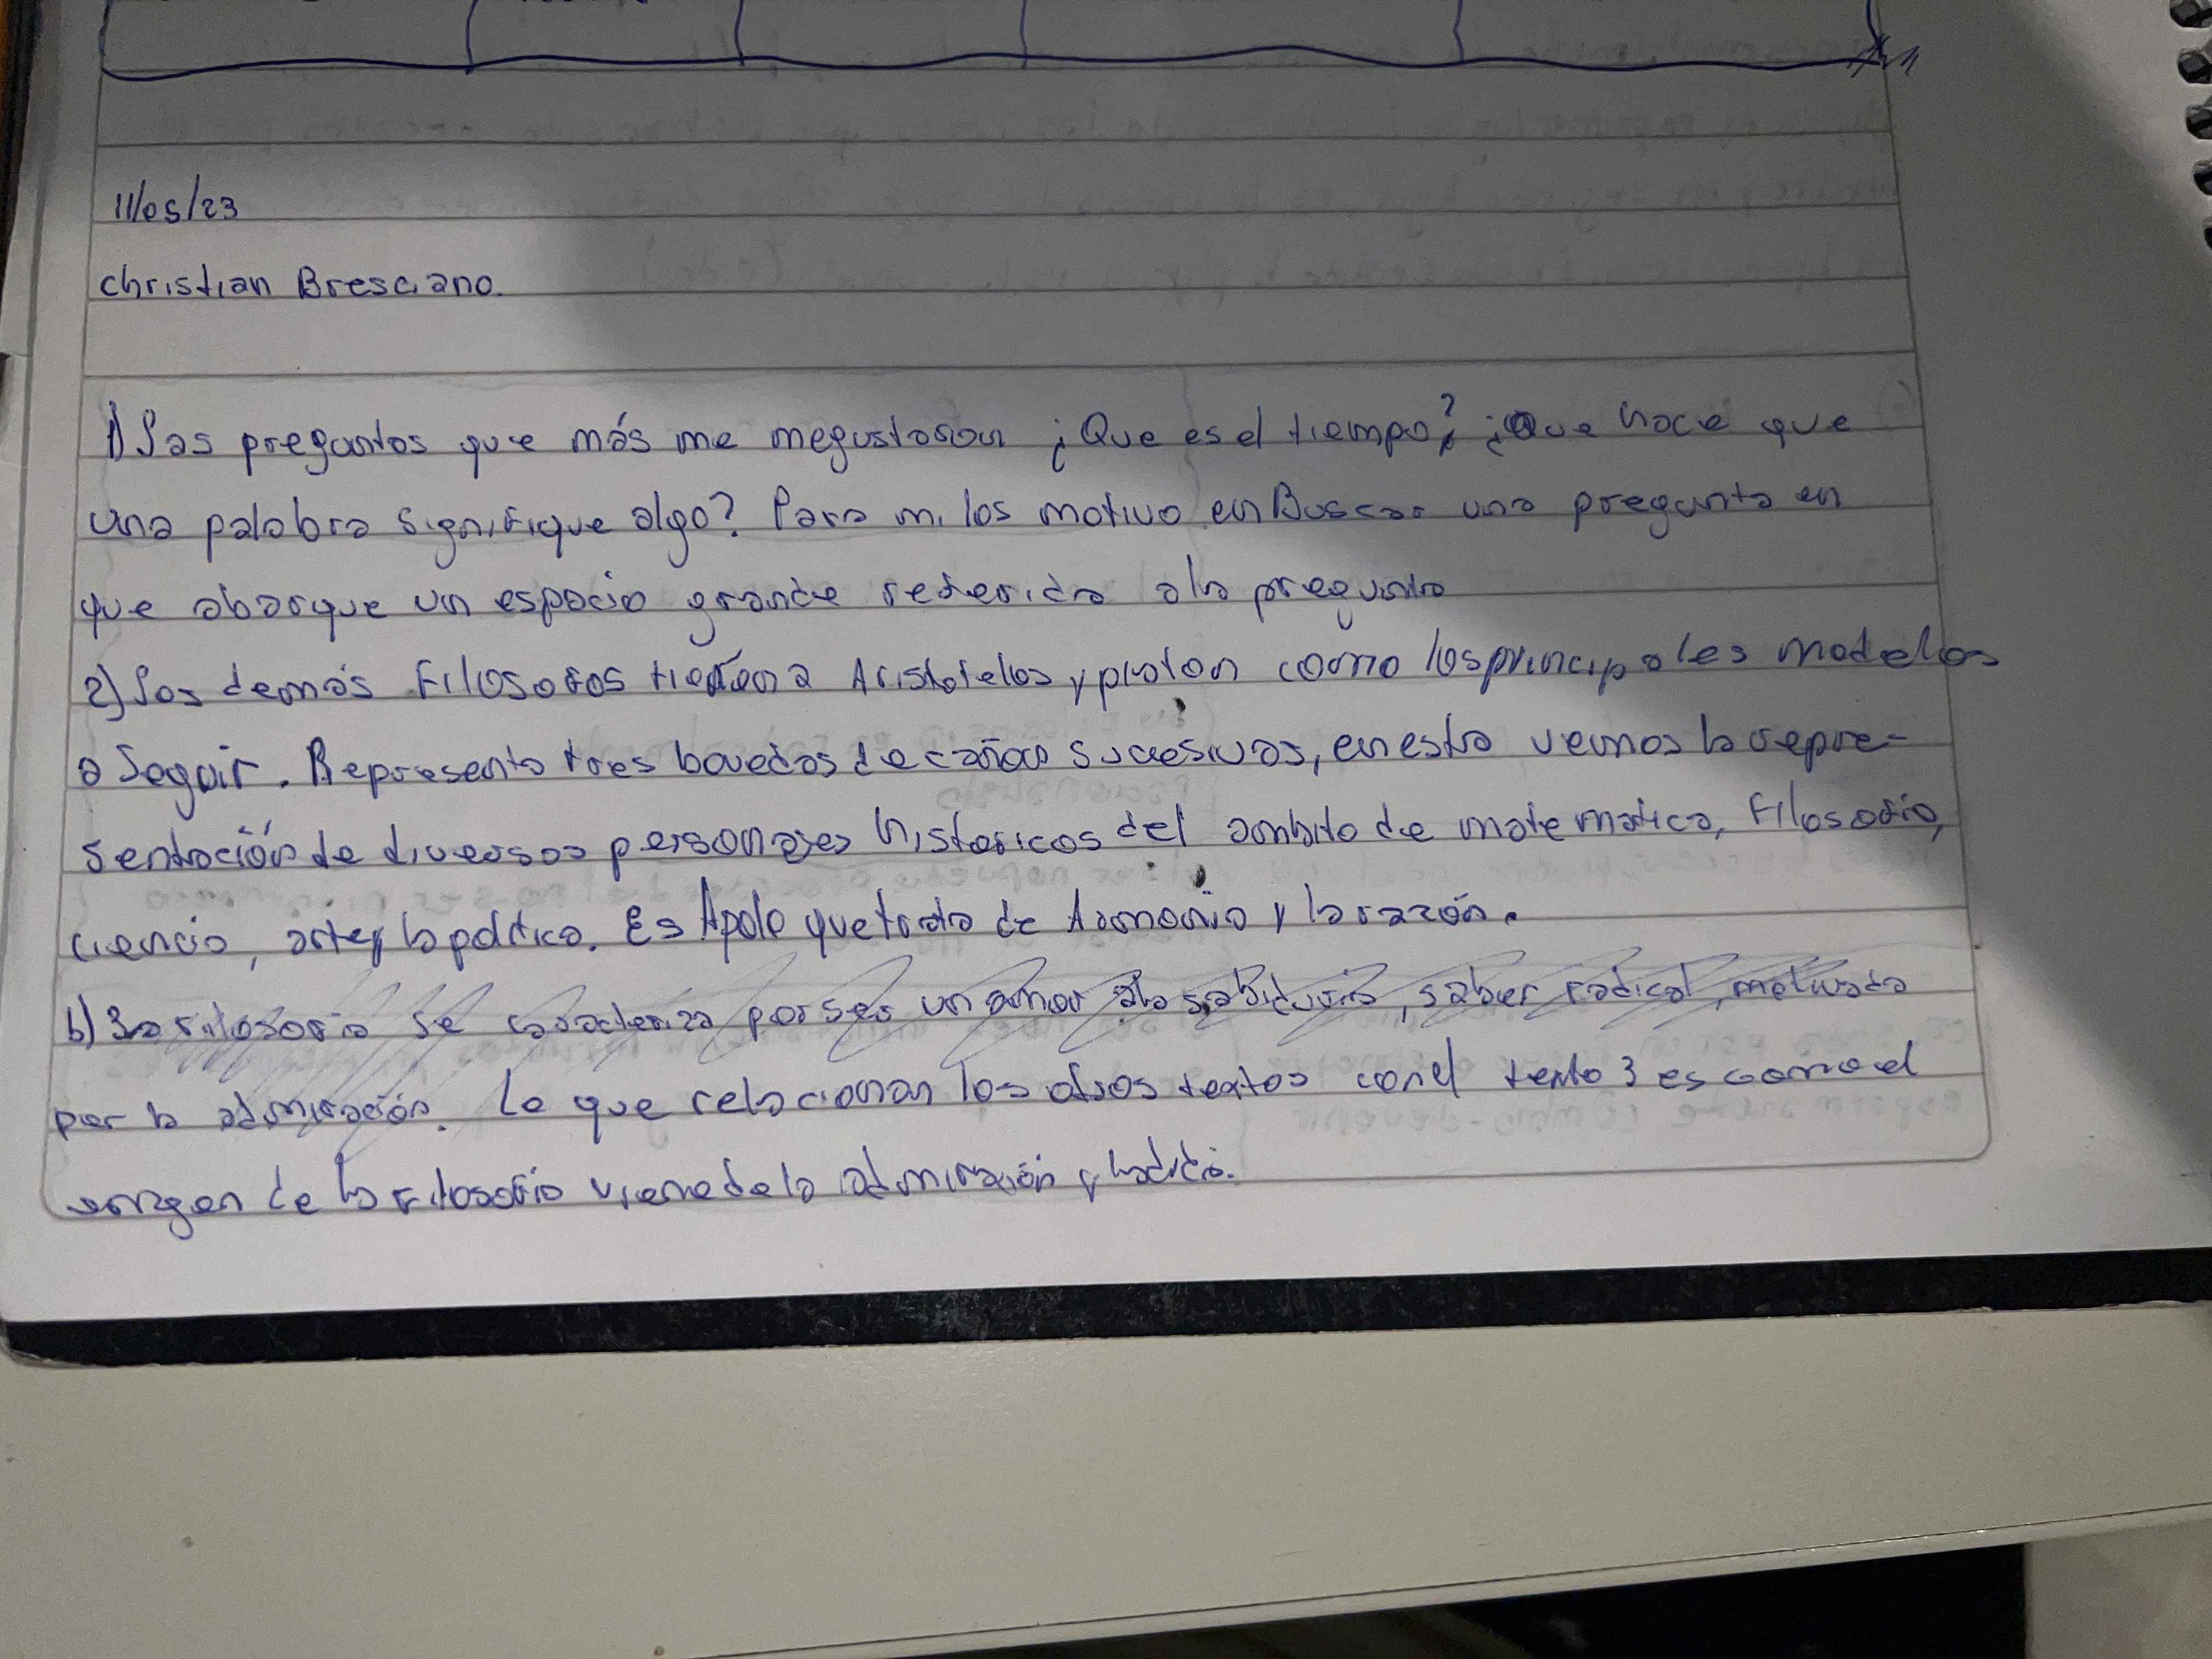 11/05/23
Christian Bresciano.
1) Las preguntas que más me megustaron ¿Que es el tiempo? ¿Que hace que
una palabra signifique algo? Para mi los motivo en Buscar una pregunta en
que abarque un espacio grande referida a la pregunta
2) Los demás Filosofos tienen a Aristotelos y platon como los principales modelos
a Seguir. Representa tres bovedas de cañon sucesivas, en esta vemos la repre-
sentación de diversos personajes historicos del ambito de matematica, Filosofia,
ciencia, arte y la politica. Es Apolo que trata de Armonia y la razón.
b) La filosofia se caracteriza por ser un amor a la sabiduria, saber radical, motivada
por la admiración. Lo que relacionan los otros textos con el texto 3 es como el
origen de la Filosofia viene de la admiración y la duda.